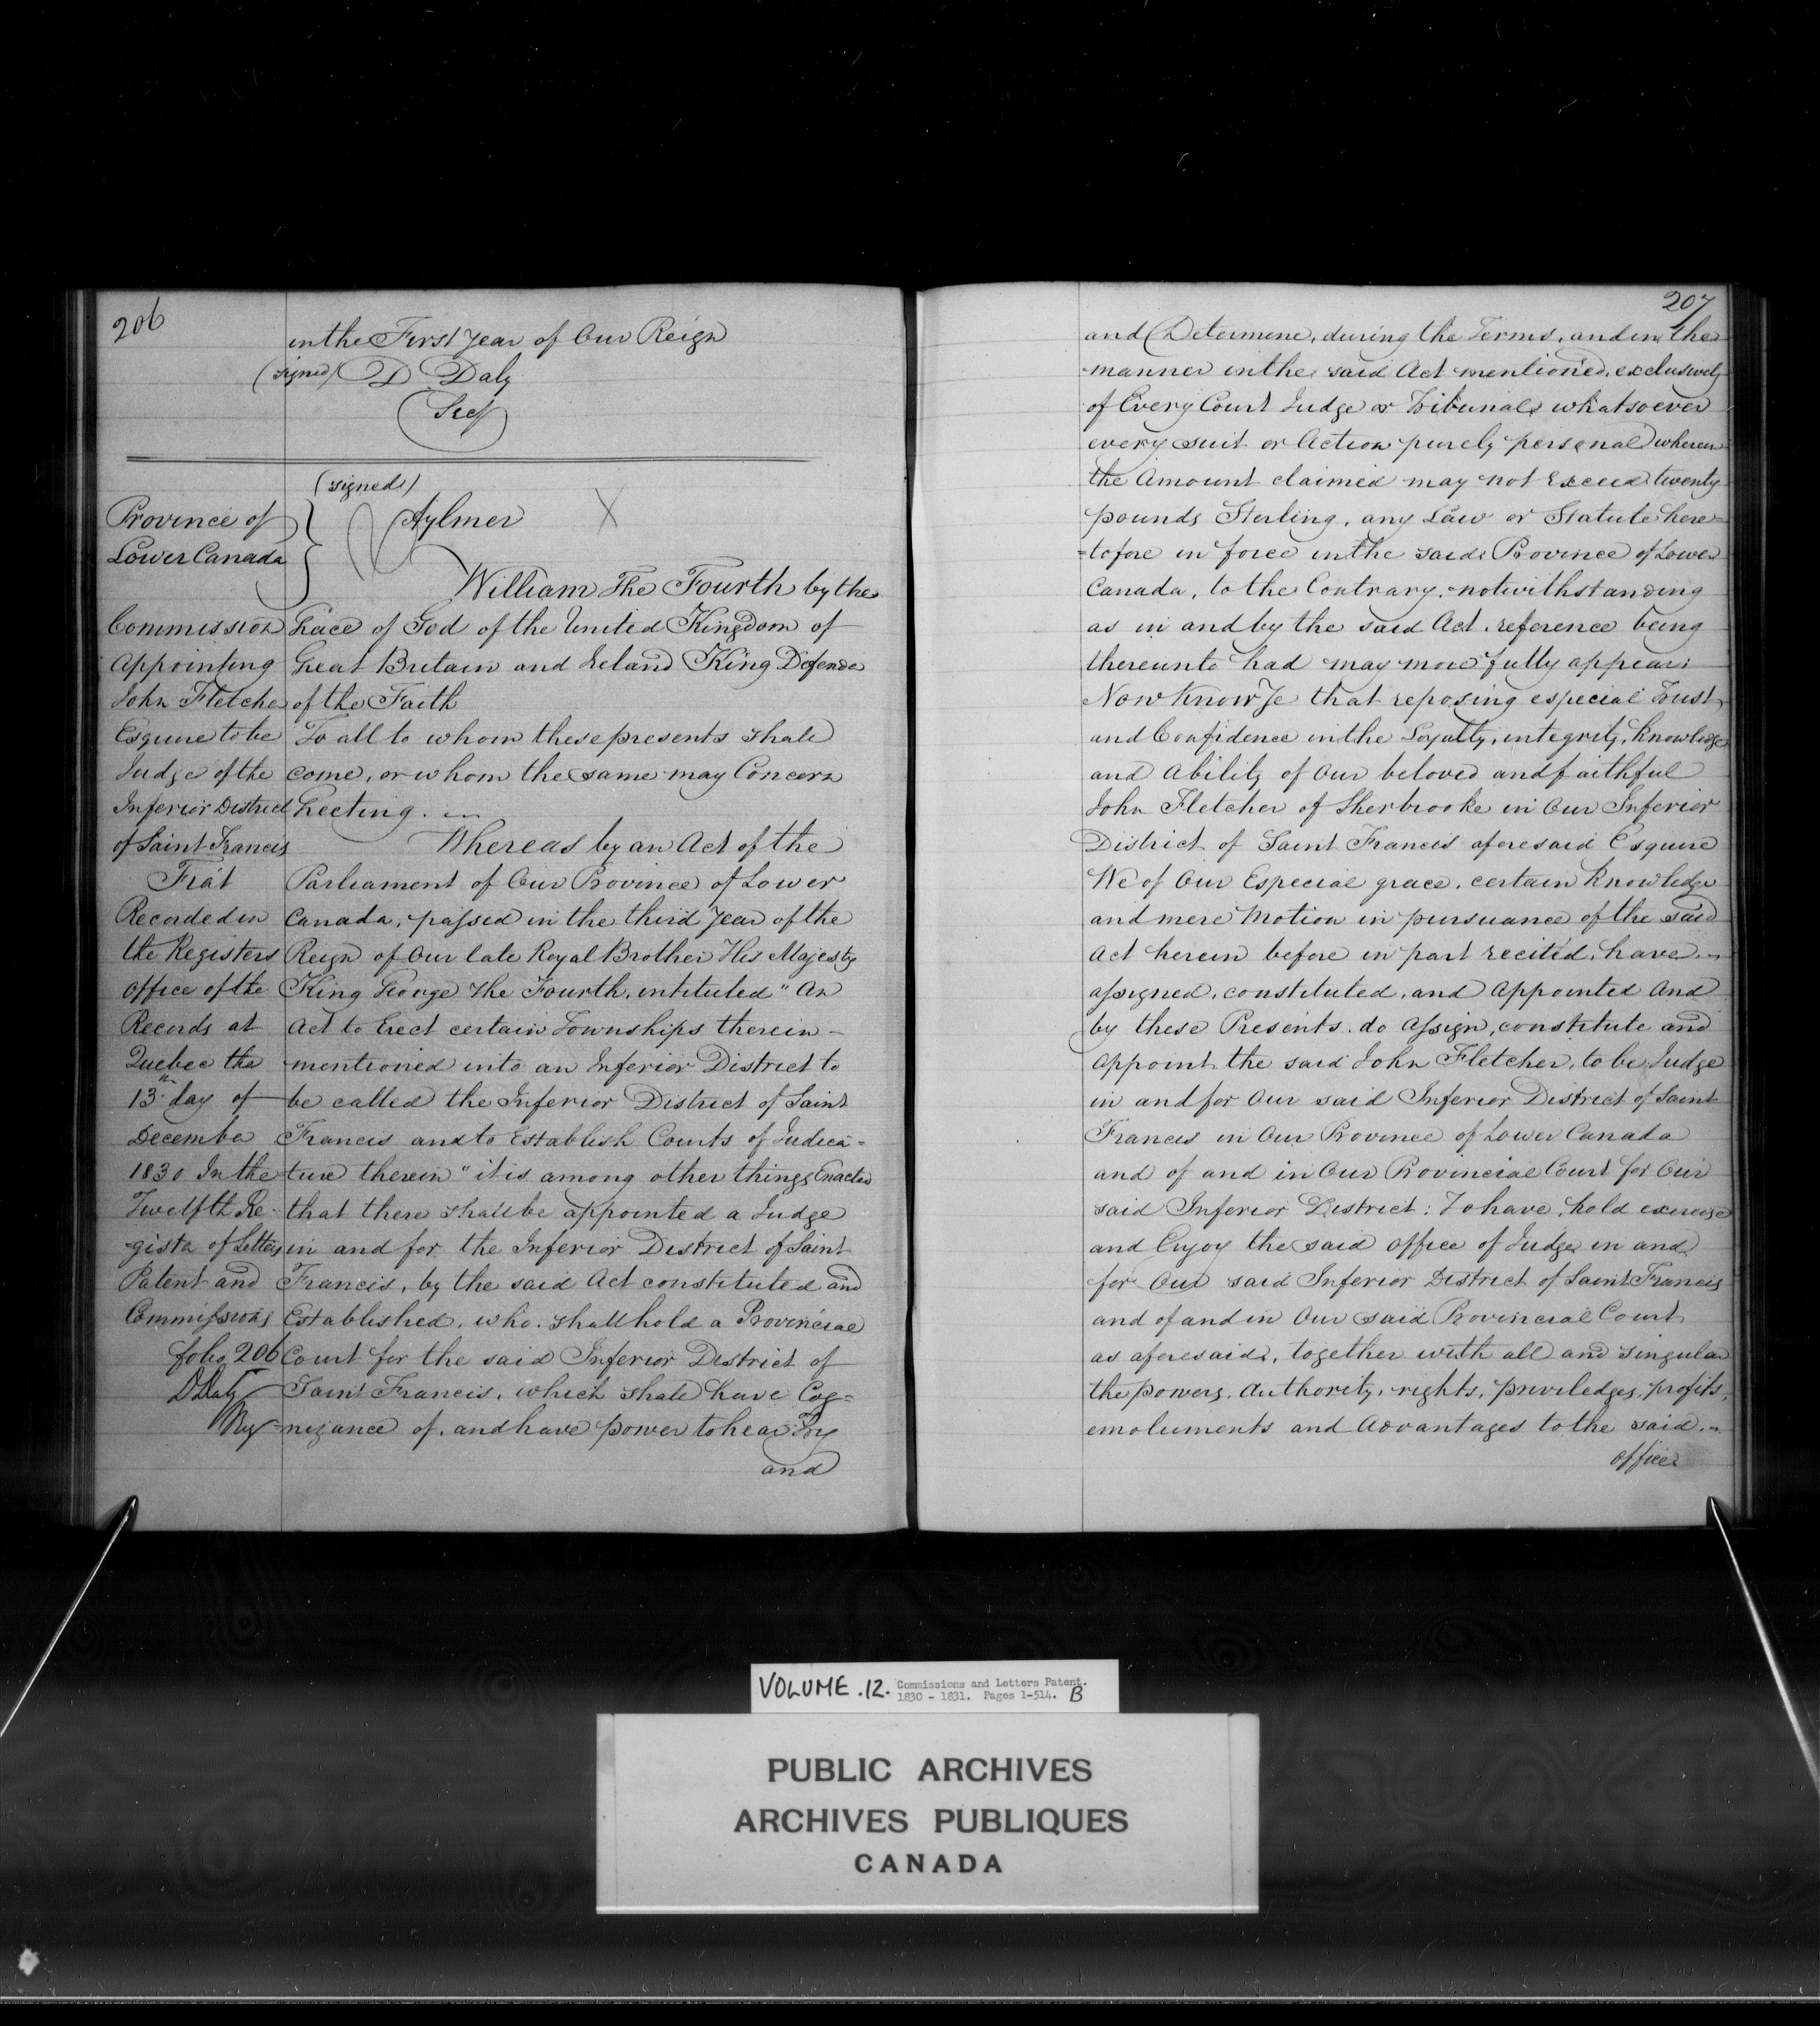 206
in the First Year of Our Reign
(signed) D Daly
Secy
(signed)
Province of
Lower Canada
Aylmer
X
Commission
Appointing
John Fletcher
Esquire to be
Judge of the
Inferior District
of Saint Francis
Fiat
Recorded in
the Registers
Office of the
Records at
Quebec the
13th day of
December
1830 In the
Twelfth Re-
gister of Letters
Patent and
Commissions
folio 206
D Daly
Reg
William The Fourth by the
Grace of God of the United Kingdom of
Great Britain and Ireland King Defender
of the Faith
To all to whom these presents shall
come, or whom the same may Concern
Greeting.
Whereas by an Act of the
Parliament of Our Province of Lower
Canada, passed in the third Year of the
Reign of Our late Royal Brother His Majesty
King George the Fourth, intituled "An
Act to Erect certain Townships therein-
mentioned into an Inferior District to
be called the Inferior District of Saint
Francis and to Establish Courts of Judica-
ture therein" it is among other things Enacted
that there shall be appointed a Judge
in and for the Inferior District of Saint
Francis, by the said Act constituted and
Established, who shall hold a Provincial
Court for the said Inferior District of
Saint Francis, which shall have Cog-
nizance of, and have power to hear Try
and
207
and Determine, during the Terms, and in the
manner in the said Act mentioned, exclusively
of Every Court Judge or Tribunal whatsoever
every suit or Action purely personal wherein
the Amount claimed may not Exceed twenty
pounds Sterling, any Law or Statute here=
=tofore in force in the said Province of Lower
Canada, to the Contrary notwithstanding
as in and by the said Act reference being
thereunto had may more fully appear:
Now Know Ye that reposing especial Trust
and Confidence in the Loyalty, integrity, Knowledge
and Ability of Our beloved and faithful
John Fletcher of Sherbrooke in Our Inferior
District of Saint Francis aforesaid Esquire
We of Our Especial grace, certain Knowledge
and mere Motion in pursuance of the said
Act herein before in part recited, have
assigned, constituted, and Appointed And
by these Presents do Assign, constitute and
Appoint the said John Fletcher, to be Judge
in and for Our said Inferior District of Saint
Francis in Our Province of Lower Canada
and of and in Our Provincial Court for Our
said Inferior District: To have, hold exercise
and Enjoy the said office of Judge in and
for Our said Inferior District of Saint Francis
and of and in Our said Provincial Court
as aforesaid, together with all and singular
the powers, Authority, rights, priviledges, profits,
emoluments and Advantages to the said
office
VOLUME .12. Commissions and Letters Patent.
1830 - 1831. Pages 1-514. B
PUBLIC ARCHIVES
ARCHIVES PUBLIQUES
CANADA